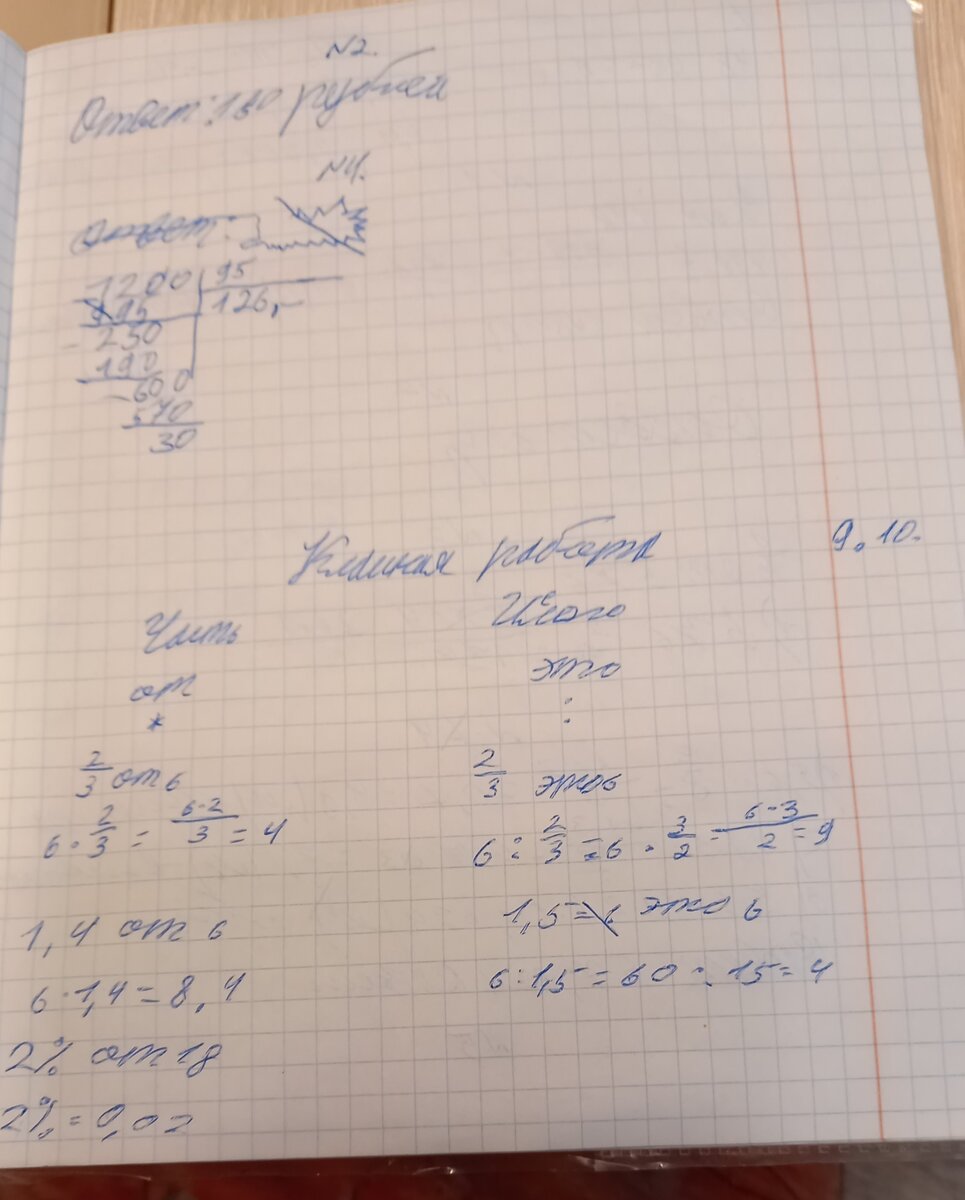 N2.
Ответ: 180 рублей
N4.
Ответ:
1200 95
95 126,
250
190
600
570
30
9.10.
Классная работа
Часть Целого
от это
* :
2/3 от 6 2/3 это 6
6 · 2/3 = 6·2/3 = 4 6 : 2/3 = 6 · 3/2 = 6·3/2 = 9
1,4 от 6 1,5 = 6 это 6
6 · 1,4 = 8,4 6 : 1,5 = 60 : 15 = 4
2% от 18
2% = 0,02